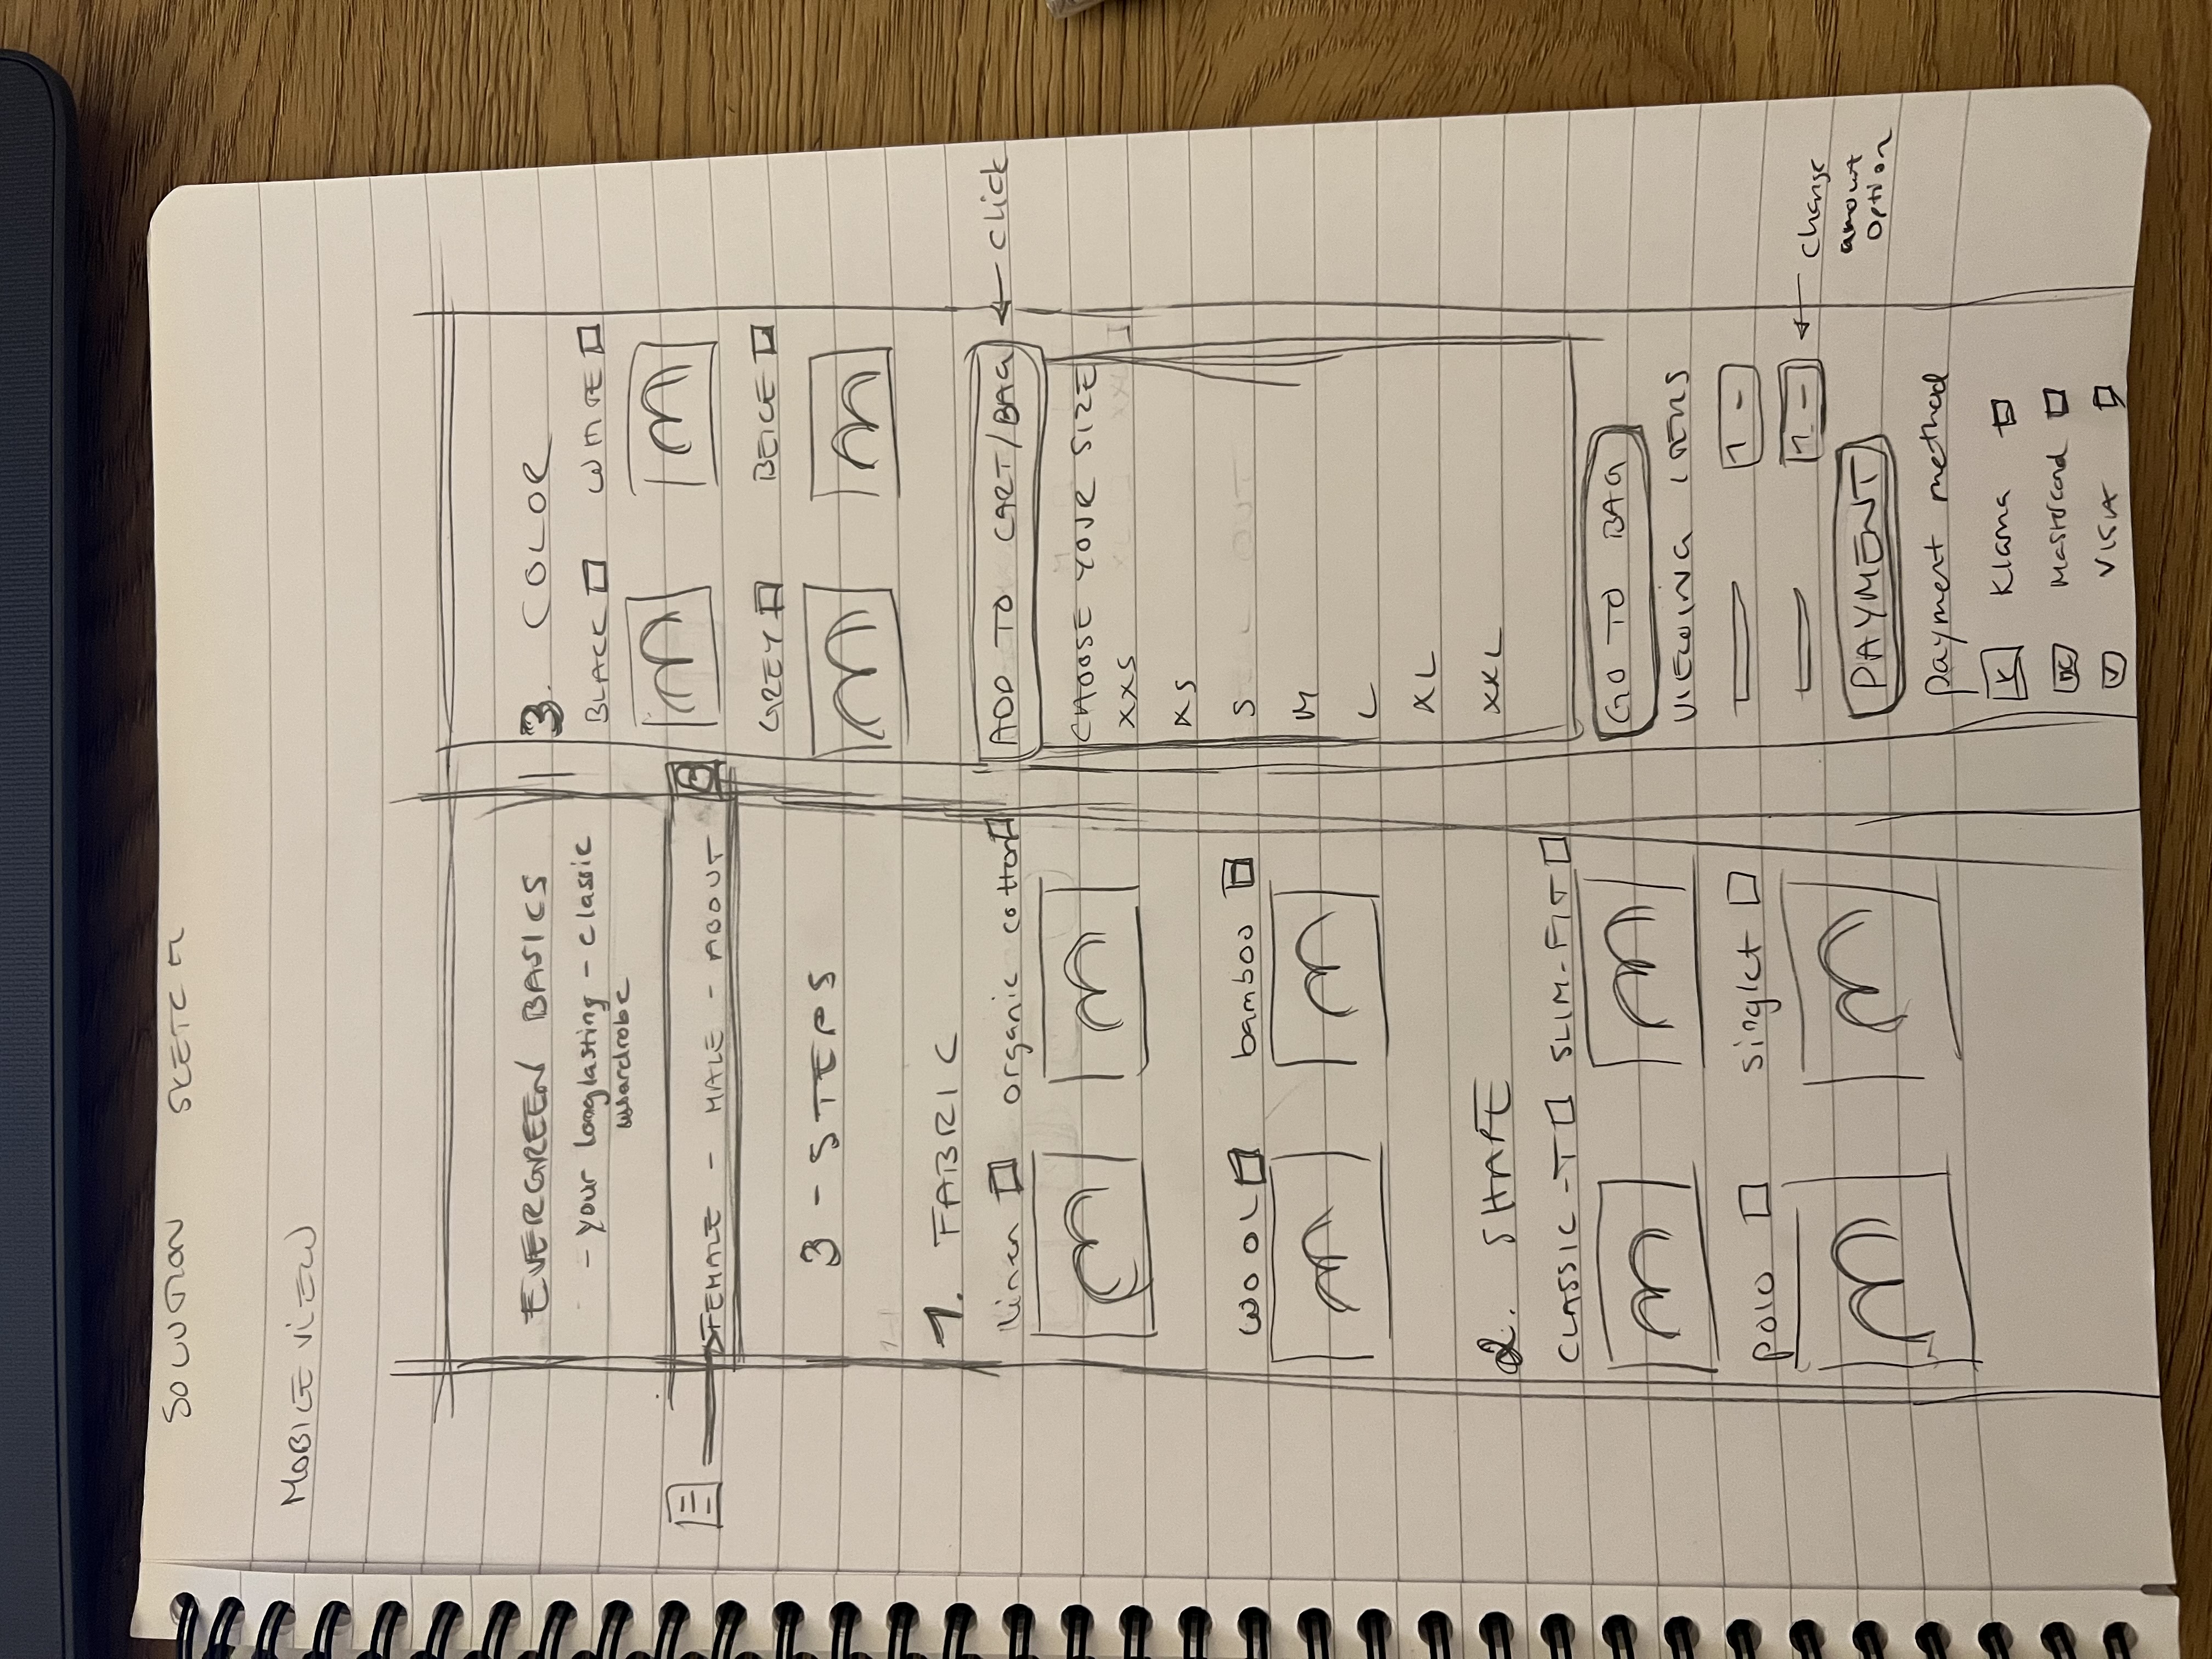 SOLUTION SKETCH
MOBILE VIEW
EVERGREEN BASICS
- your longlasting - classic
wardrobe
FEMALE - MALE - ABOUT
3 - STEPS
1. FABRIC
linen organic cotton
WOOL bamboo
2. SHAPE
CLASSIC-T SLIM-FIT
polo singlet
3. COLOR
BLACK WHITE
GREY BEIGE
ADD TO CART/BAG ← click
CHOOSE YOUR SIZE
XXS
XS
S
M
L
XL
XXL
GO TO BAG
VIEWING ITEMS
1 -
1 -
← change
amount
option
PAYMENT
payment method
K Klarna
MC Mastercard
V VISA